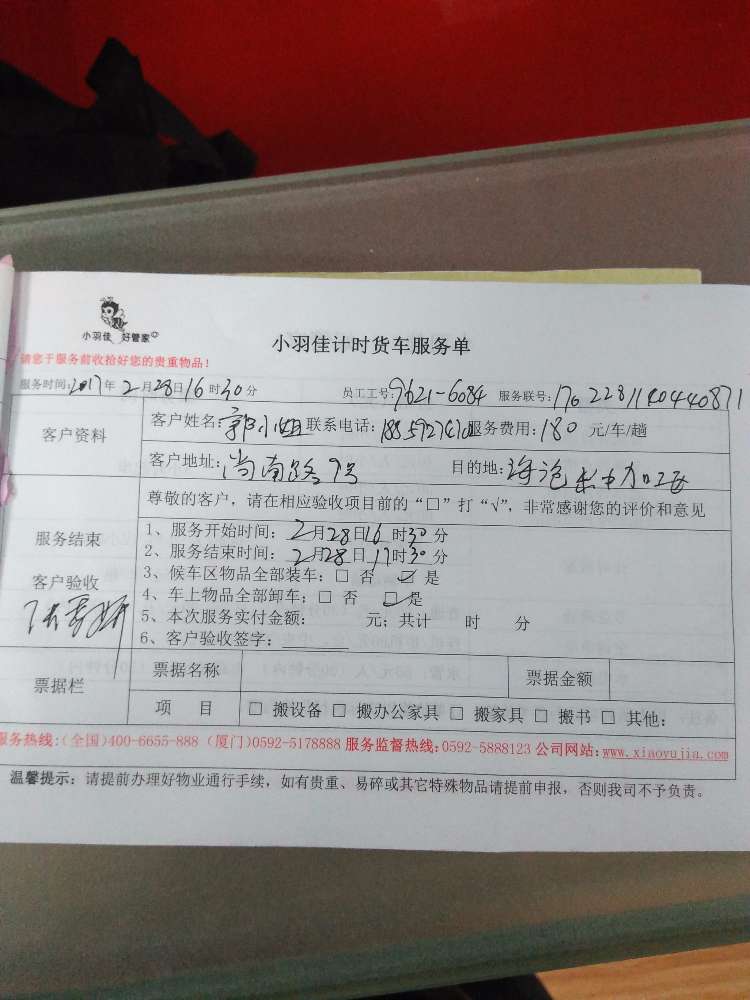 小羽佳 好管家
小羽佳计时货车服务单
请您于服务前收拾好您的贵重物品！
服务时间：2017年2月28日16时30分 员工工号：9621-6084 服务联号：1702281140440871
客户资料
客户姓名：郭小姐 联系电话： 服务费用：180 元/车/趟
客户地址：尚南路9号 目的地：海沧
尊敬的客户，请在相应验收项目前的“□”打“√”，非常感谢您的评价和意见
服务结束
客户验收
1、服务开始时间：2月28日16时30分
2、服务结束时间：2月28日17时30分
3、候车区物品全部装车：□ 否 ☑ 是
4、车上物品全部卸车：□ 否 ☑ 是
5、本次服务实付金额： 元；共计 时 分
6、客户验收签字：
票据栏
票据名称 票据金额
项 目 □ 搬设备 □ 搬办公家具 □ 搬家具 □ 搬书 □ 其他：
服务热线：(全国)400-6655-888 (厦门)0592-5178888 服务监督热线：0592-5888123 公司网站：www.xiaoyujia.com
温馨提示：请提前办理好物业通行手续，如有贵重、易碎或其它特殊物品请提前申报，否则我司不予负责。